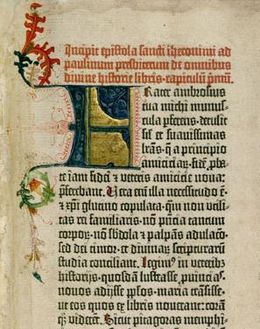 Incipit epistola sancti iheronimi ad
paulinum presbiterum de omnibus
divine historie libris. capitulū pmū.
Frater ambrosius
tua michi munus-
cula pferens. detulit
sił et suavissimas
lrās. q̄ a principio
amiciciaꝝ. fidē pba-
te iam fidei et veteris amicicie nova:
pferebant. Vera eni illa necessitudo ē.
et xpi glutino copulata. qm non utili-
tas rei familiaris. nō pntia tantum
corpoꝝ. nō sbdola et palpās adulac̄o.
sed dei timor. et divinaꝝ scripturarū
studia conciliant. Legim⁹ in veterib⁹
historijs. quosdā lustrasse puincias.
novos adijsse pplos. maria trāsisse.
ut eos quos ex libris noverant: corā
q̄ viderēt. Sicut pitagoras memphi-